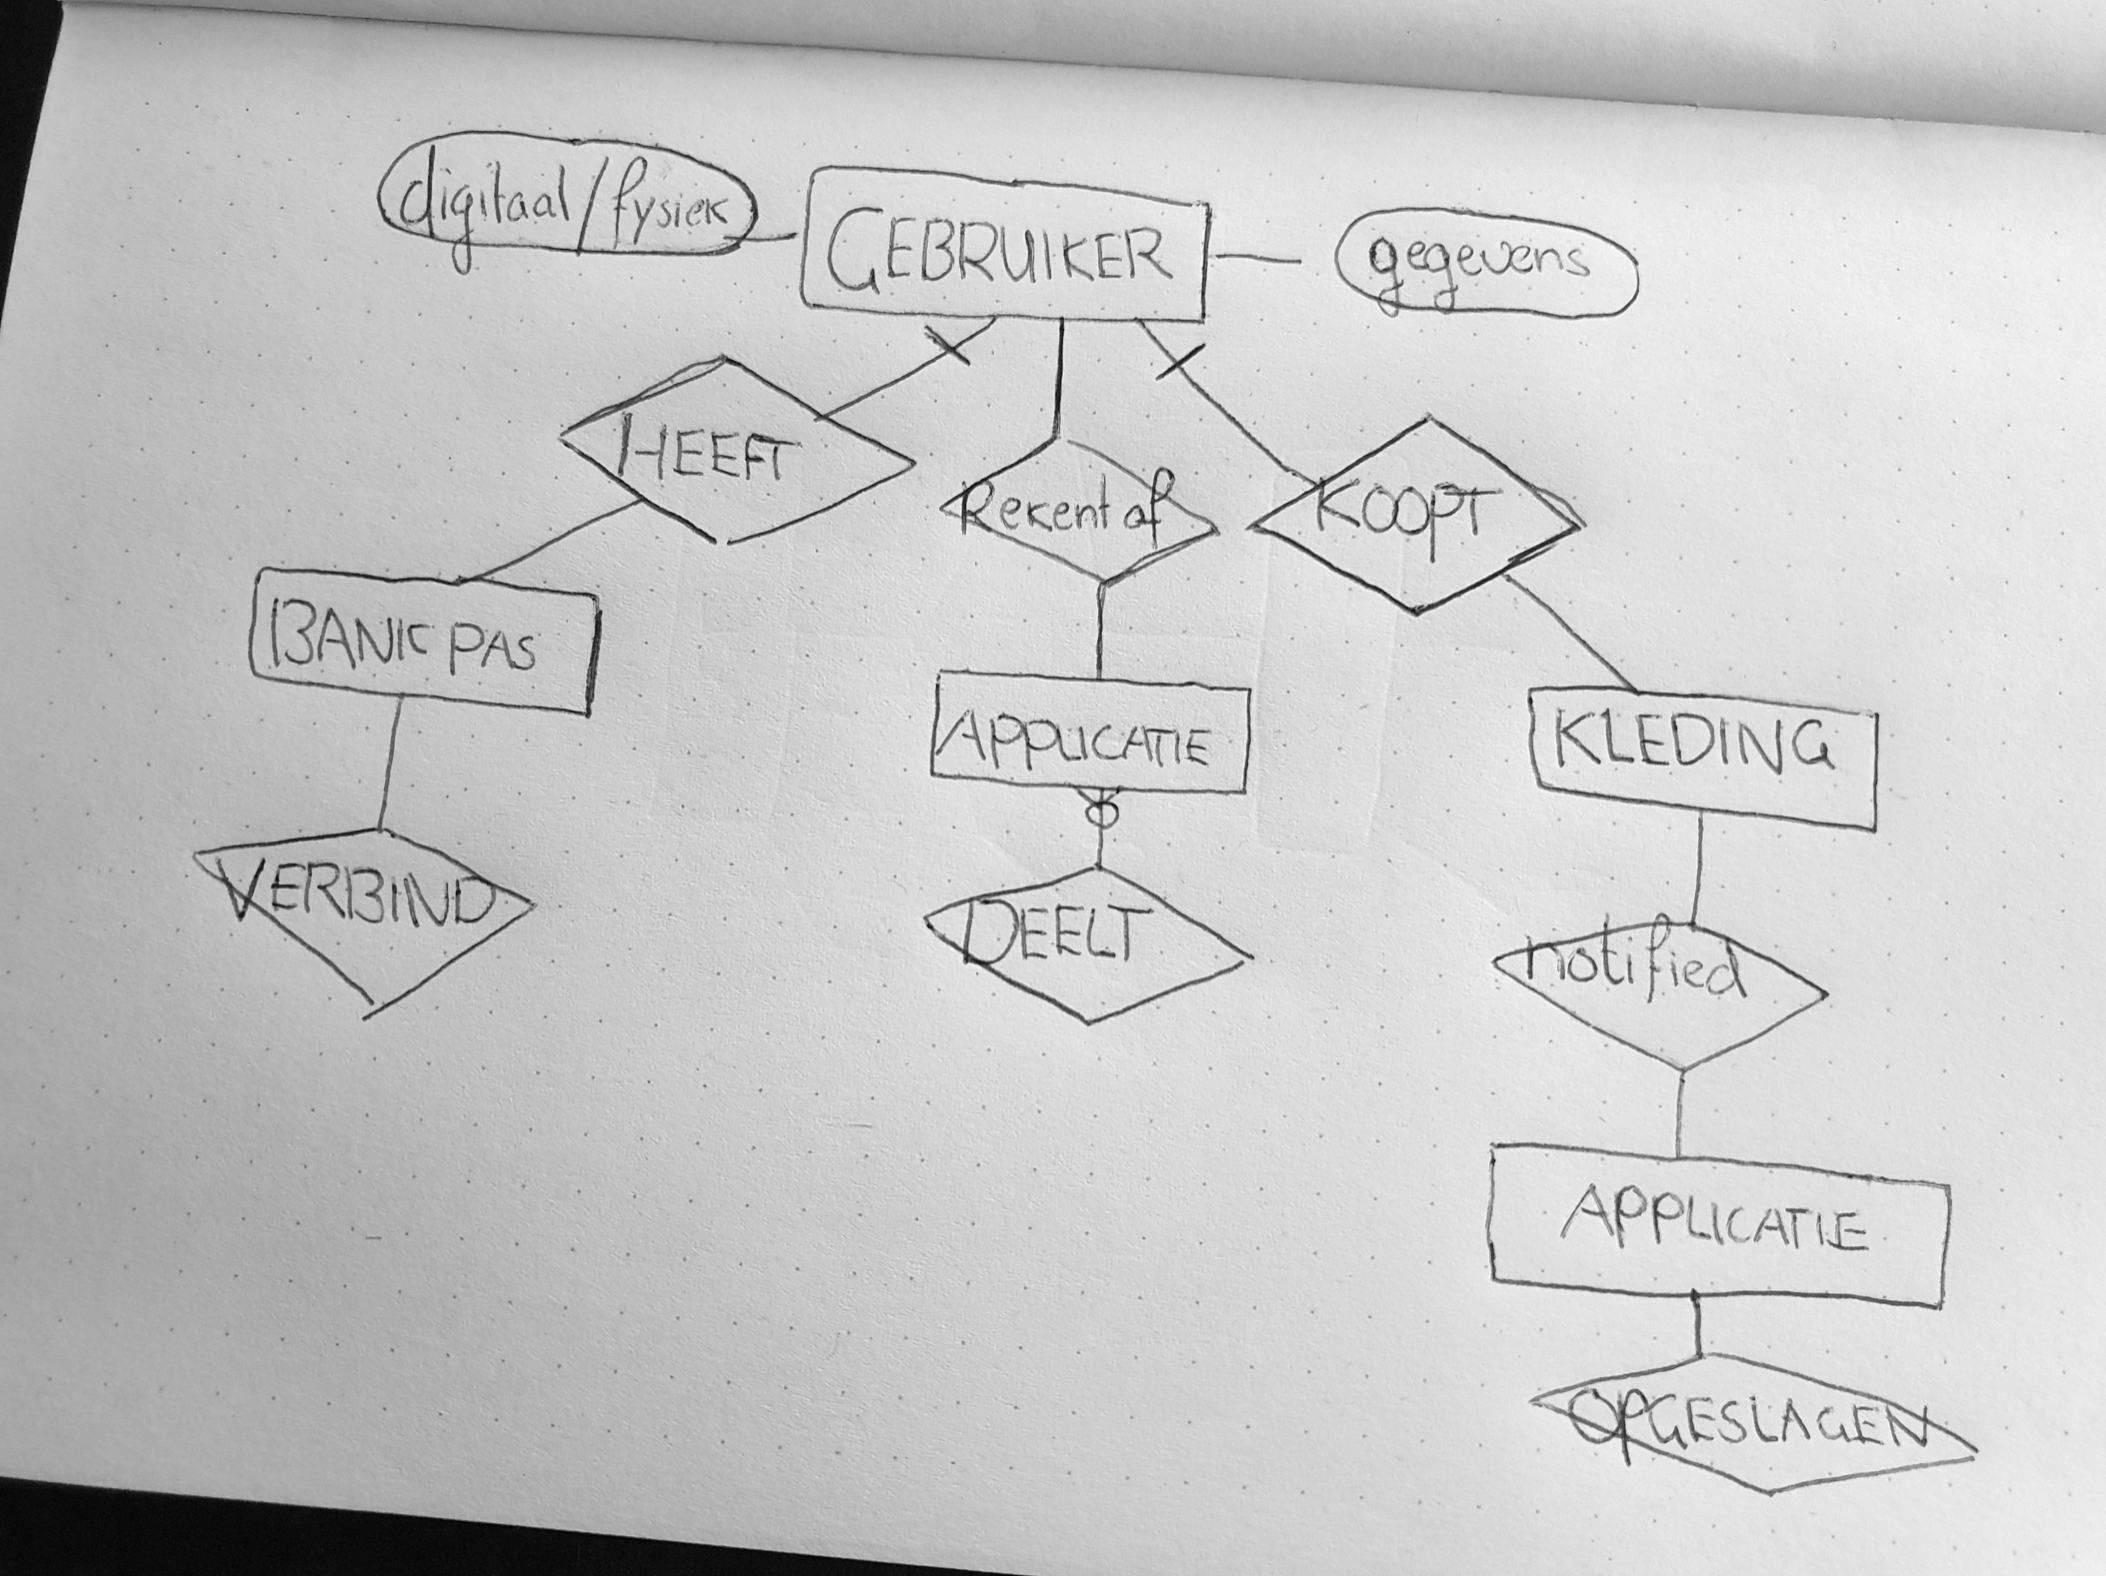 digitaal/fysiek
GEBRUIKER
gegevens
HEEFT
Rekent af
KOOPT
BANK PAS
APPLICATIE
KLEDING
VERBIND
DEELT
notified
APPLICATIE
OPGESLAGEN